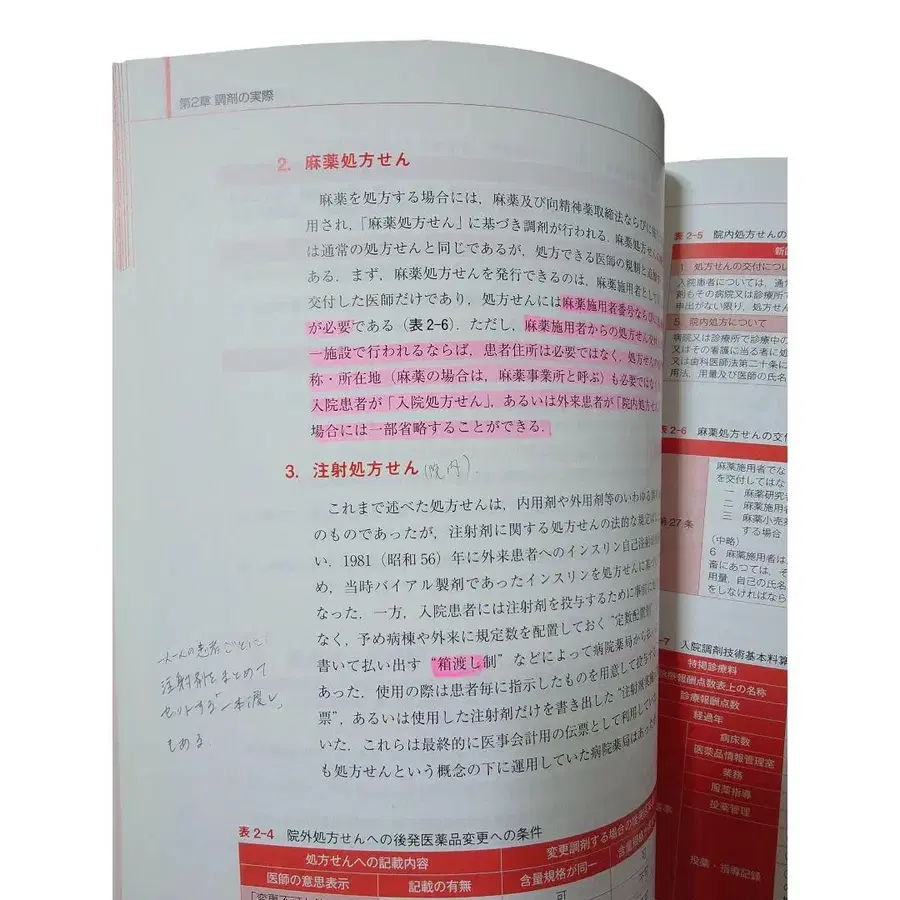 第2章 調剤の実際
2. 麻薬処方せん
麻薬を処方する場合には，麻薬及び向精神薬取締法ならびに
用され，「麻薬処方せん」に基づき調剤が行われる．麻薬処方せん
は通常の処方せんと同じであるが，処方できる医師の規制と
ある．まず，麻薬処方せんを発行できるのは，麻薬施用者として
交付した医師だけであり，処方せんには麻薬施用者番号ならびに
が必要である（表2-6）．ただし，麻薬施用者からの処方せん
一施設で行われるならば，患者住所は必要ではなく，処方せんの
称・所在地（麻薬の場合は，麻薬事業所と呼ぶ）も必要ではな
入院患者が「入院処方せん」，あるいは外来患者が「院内処方せ
場合には一部省略することができる．
3. 注射処方せん（院内）．
これまで述べた処方せんは，内用剤や外用剤等のいわゆる
のものであったが，注射剤に関する処方せんの法的な規定は
い．1981（昭和56）年に外来患者へのインスリン自己注射
め，当時バイアル製剤であったインスリンを処方せんに基づ
なった．一方，入院患者には注射剤を投与するために事前に
なく，予め病棟や外来に規定数を配置しておく“定数配置制”
書いて払い出す“箱渡し制”などによって病院薬局から
あった．使用の際は患者毎に指示したものを用意して投与す
票”，あるいは使用した注射剤だけを書き出した“注射
いた．これらは最終的に医事会計用の伝票として利用してい
も処方せんという概念の下に運用していた病院薬局はあった
一人一人の患者ごとに
注射剤をまとめて
セットする「一本渡し」
もある．
表2-4 院外処方せんへの後発医薬品変更への条件
処方せんへの記載内容
変更調剤する場合の後発医薬
医師の意思表示
記載の有無
含量規格が同一
含量規格が
可
表2-5 院内処方せんの
1. 処方せんの交付につい
入院患者については，通
剤もその病院又は診療所で
申出がない限り，処方せん
5. 院内処方について
病院又は診療所で診療中の
又はその看護に当る者に処
又は歯科医師法第二十条に
用法，用量及び医師の氏名
表2-6 麻薬処方せんの交付
第27条
麻薬施用者でな
を交付してはな
一 麻薬研究者
二 麻薬施用者
三 麻薬小売業
する場合
（中略）
6 麻薬施用者は，
畜にあつては，そ
用量，自己の氏名
をしなければなら
-7 入院調剤技術基本料算
特掲診療料
診療報酬点数表上の名称
診療報酬点数
経過年
病床数
医薬品情報管理室
業務
服薬指導
投薬管理
基準
投薬・指導記録